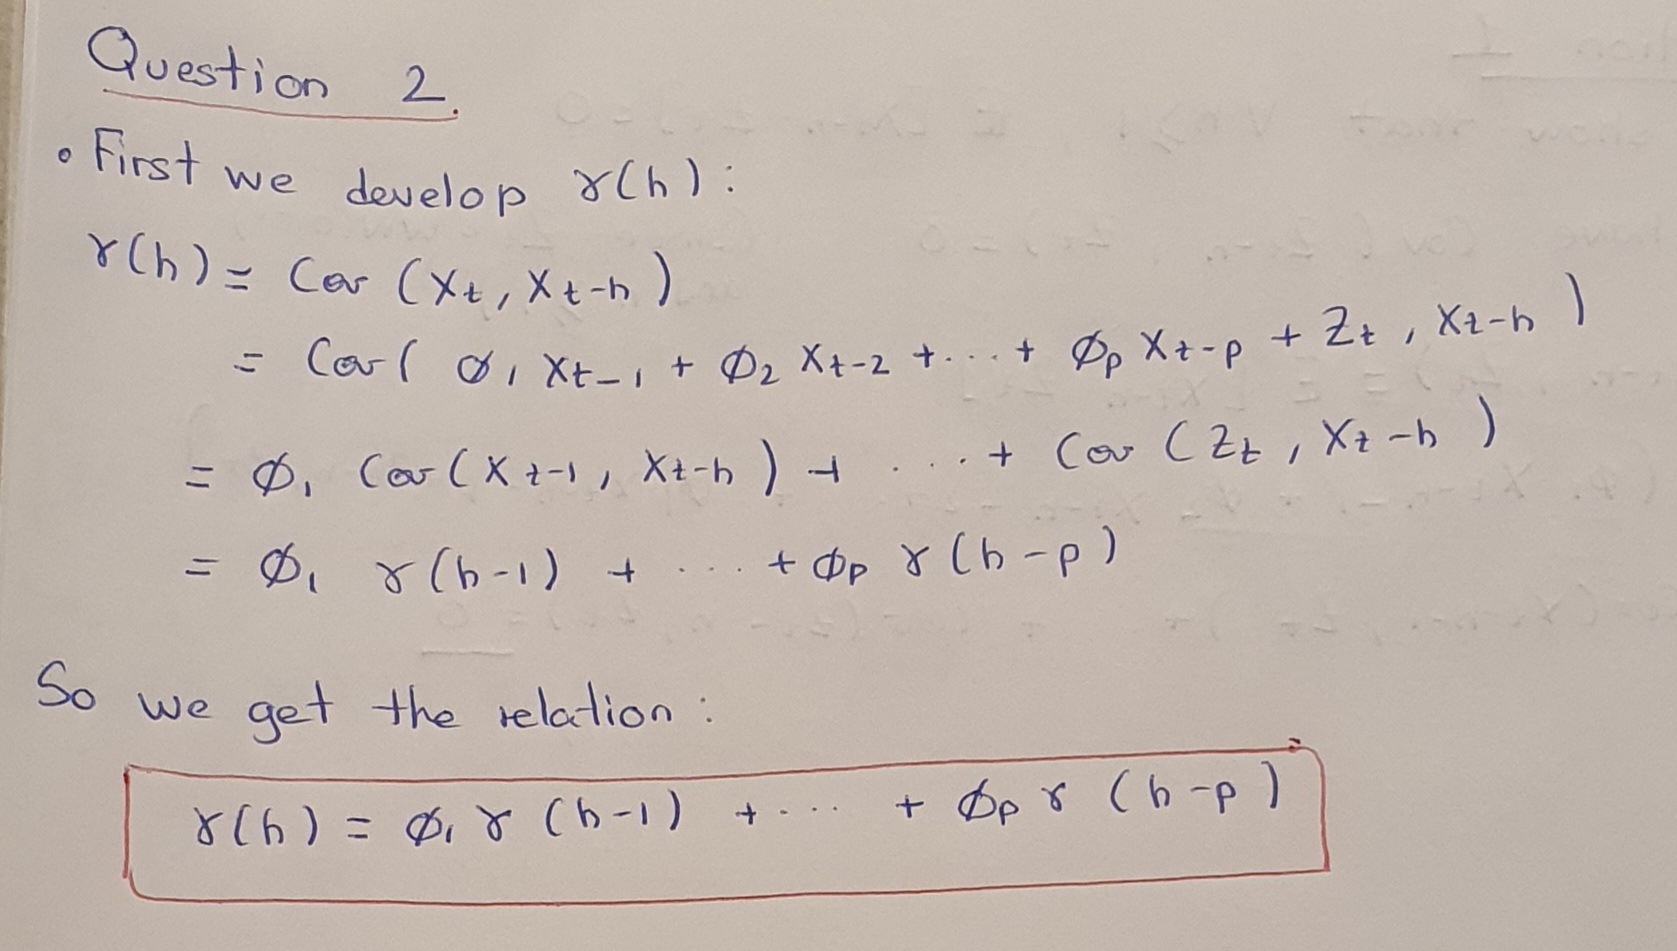 Question 2.
• First we develop γ(h):
γ(h) = Cov (Xt, Xt-h)
= Cov( ϕ1 Xt-1 + ϕ2 Xt-2 + ... + ϕp Xt-p + Zt, Xt-h )
= ϕ1 Cov (Xt-1, Xt-h) + ... + Cov (Zt, Xt-h)
= ϕ1 γ(h-1) + ... + ϕp γ(h-p)
So we get the relation:
γ(h) = ϕ1 γ (h-1) + ... + ϕp γ (h-p)